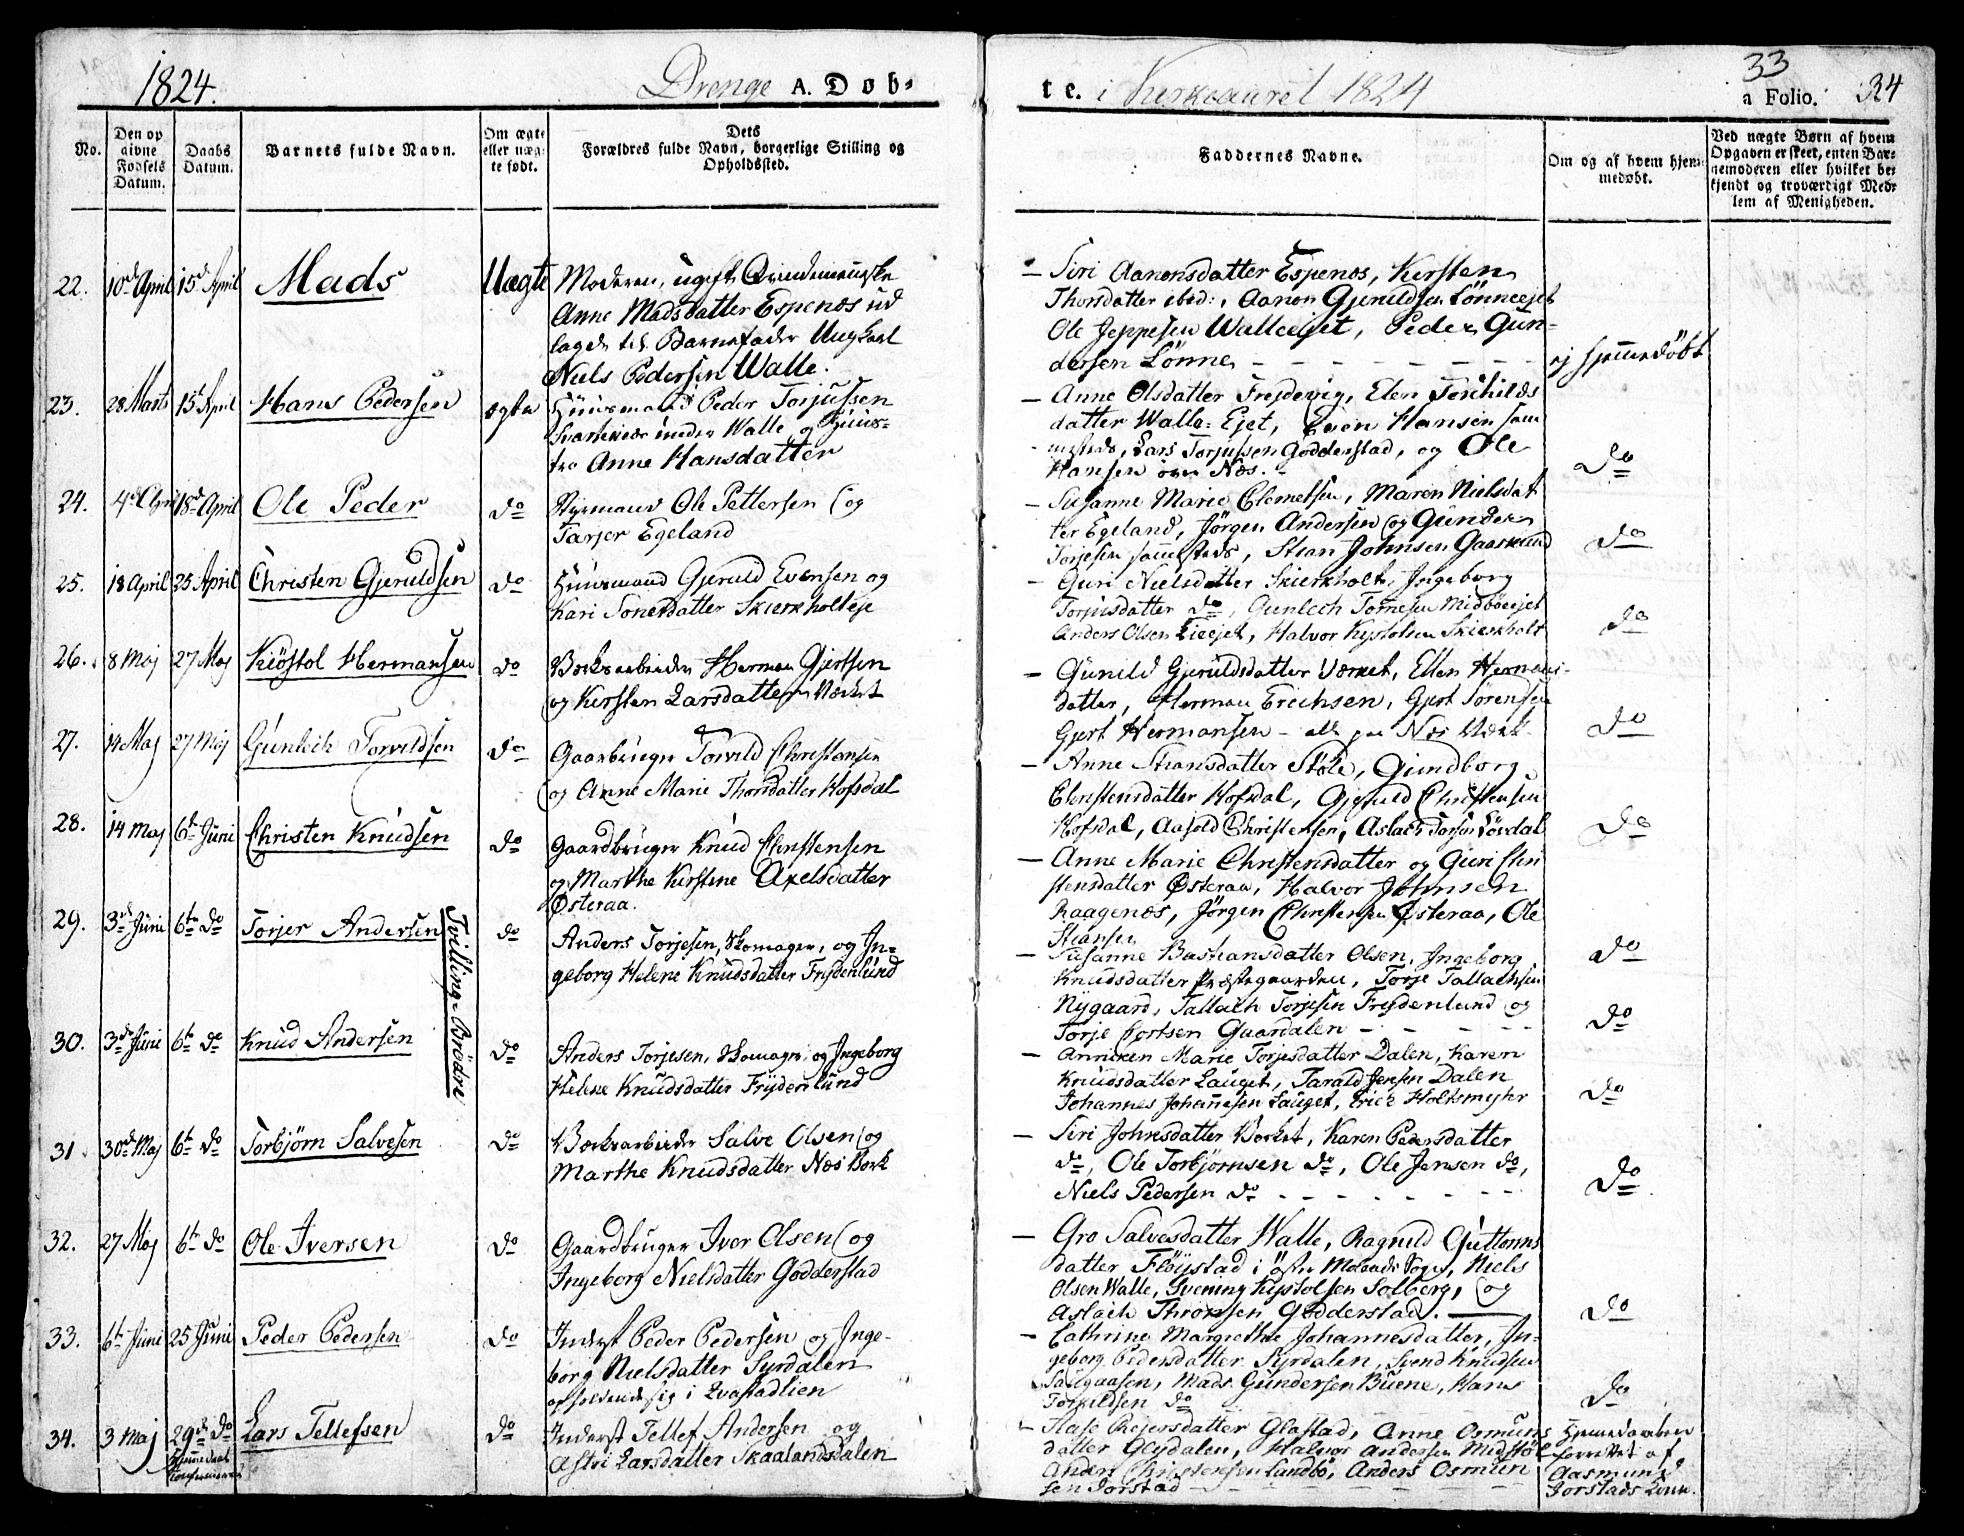 1824.
Drenge A. Døb-
te. i Kirkeaaret 1824
33
a Folio. 34
No.
Den op
givne
Fødsels
Datum.
Daabs
Datum.
Barnets fulde Navn.
Om ægte
eller uæg-
te født.
Dets
Forældres fulde Navn, borgerlige Stilling og
Opholdssted.
Faddernes Navne.
Om og af hvem hjem-
medøbt.
Ved uægte Børn af hvem
Opgaven er skeet, enten Bar-
nemoderen eller hvilket be-
kjendt og troværdigt Med-
lem af Menigheden.
22. 10d April 15d April Mads Uægte
Moderen, ugift Qvindemenneske
Anne Madsdatter Espenes ud
lagde til Barnefader Ungkarl
Niels Pedersen Walle.
– Siri Aanonsdatter Espenes, Kirsten
Thorsdatter ibid:, Aanon Gjeruldsen Lønneejet
Ole Jeppesen Walleeiet, Peder Gun-
dersen Lønne
ej hjemmedøbt
23. 28 Marts 15d April Hans Pedersen ægte
Huusmand Peder Torjussen
under Walle og Huus-
tro Anne Hansdatter
– Anne Olsdatter Frejdevig, Elen Torkilds
datter Walle-Ejet, Even Hansen sam
mesteds, Lars Torjussen Godderstad, og Ole
Hansen øvre Næs.
do
24. 18d April Ole Peder do
Styrmand Ole Pettersen og
Tarjer Egeland
– Susanne Marie Clemetsen, Maren Nielsdat
ter Egeland, Jørgen Andersen og Gunder
Torjesen sammesteds, Stian Johnsen Gaaslund
do
25. 18 April 25 April Christen Gjeruldsen do
Huusmand Gjeruld Evensen og
Kari Tonesdatter Skierkholteje
– Guri Nielsdatter Skierkholt, Ingeborg
Torjusdatter do, Gunlech Tomesen Midbøeejet
Anders Olsen Lieejet, Halvor Kystolsen Skierkholt
do
26. 8 Maj 27 Maj Kiøstol Hermansen do
Værksarbeider Herman Gjertsen
og Kirsten Larsdatter Værket
– Gunild Gjeruldsdatter Værket, Ellen Hermans-
datter, Herman Erichsen, Gjert Sørensen
Gjert Hermansen – alle paa Næs Værk
do
27. 14 Maj 27 Maj Gunlech Torvildsen do
Gaardbruger Torvild Christensen
og Anne Marie Thorsdatter Hofsdal
– Anne Stiansdatter Støle, Gundborg
Christensdatter Hofsdal, Gjeruld Christensen
Hofsdal, Aasold Christensen, Aslach Torsen Løvdal
do
28. 14 Maj 6te Juni Christen Knudsen do
Gaardbruger Knud Christensen
og Marthe Kirstine Axelsdatter
Østeraa.
– Anne Marie Christensdatter og Guri Chri
stensdatter Østeraa, Halvor Johnsen
Raagenes, Jørgen Christensen Østeraa, Ole
Stiansen
29. 3die Juni 6te do Torjer Andersen do
Tvilling-Brødre
Anders Torjesen, Skomager, og In-
geborg Helene Knudsdatter Frydenlund
– Susanne Bastiansdatter Olsen, Ingeborg
Knudsdatter Præstegaarden, Torje Tallachsen
Nygaard, Tallach Torjesen Frydenlund og
Torje Gaardalen
do
30. 3die Juni 6te do Knud Andersen do
Anders Torjesen, Skomager og Ingeborg
Helene Knudsdatter Frydenlund
– Anneken Marie Torjesdatter Dalen, Karen
Knudsdatter Lauget, Tarald Jensen Dalen
Johannes Johannesen Lauget, Erich Holtsmyhr
do
do
31. 30d Maj 6te do Torbjørn Salvesen do
Værksarbeider Salve Olsen og
Marthe Knudsdatter Næs Værk
– Siri Johnsdatter Værket, Karen Pedersdatter
do, Ole Torbjørnsen do, Ole Jensen do,
Niels Pedersen do
do
32. 27 Maj 6te do Ole Iversen do
Gaardbruger Iver Olsen og
Ingeborg Nielsdatter Godderstad
– Gro Salvesdatter Walle, Ragnild Guttorms
datter Fløystad i Østre Molands Sogn, Niels
Olsen Walle, Svening Kystolsen Solberg, og
Aslach Thronsen Godderstad.
do
33. 6te Juni 25 Juni Peder Pedersen do
Inderst Peder Pedersen og Inge-
borg Nielsdatter Syrdalen
opholdende sig i
– Cathrine Margrethe Johannesdatter, In-
geborg Pedersdatter Syrdalen, Svend Knudsen
Mads Gundersen Buene, Hans
Torkildsen do
do
34. 3 Maj 29de do Lars Tellefsen do
Inderst Tellef Andersen og
Astri Larsdatter Skaalandsdalen
– Aase Rejersdatter Glastad, Anne Osmuns
datter Glydalen, Halvor Andersen Midstøl
Anders Christensen Lundbø, Anders Osmun
sen Jorstad
Hjemmedaaben
forrettet af
Aasmund
Jorstads Kone.